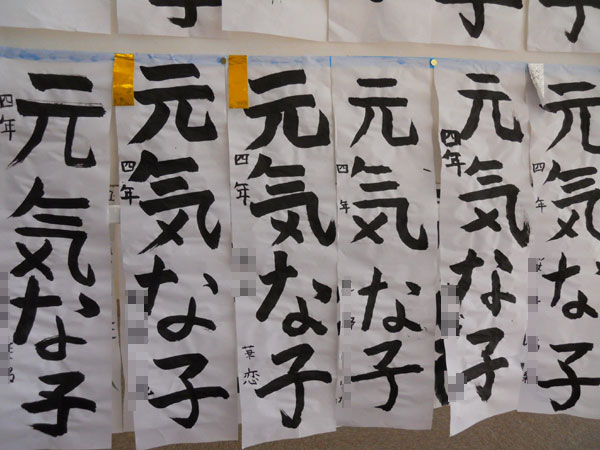 元気な子
四年
元気な子
四年
元気な子
四年
元気な子
四年
恋
元気な子
四年
元気な子
四年